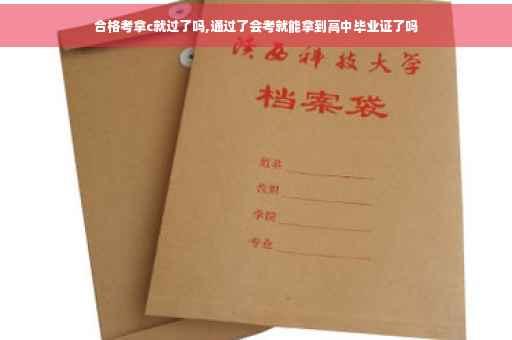 合格考拿c就过了吗,通过了会考就能拿到高中毕业证了吗
陕西科技大学
档案袋
姓名
学院
专业